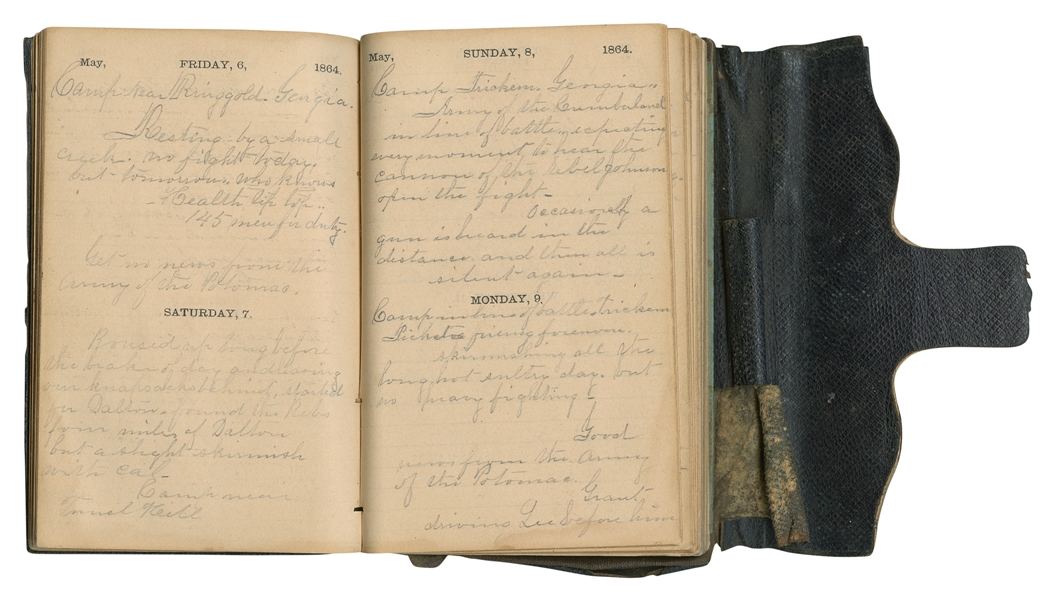 May, FRIDAY, 6, 1864.
Camp near Ringgold Georgia.
Resting by a small
creek. no fight today.
but tomorrow who knows
- Health tip top..
145 men for duty.
Get no news from the
Army of the Potomac.
SATURDAY, 7.
Roused up long before
the break of day and leaving
our knapsacks behind, started
for Dalton, found the Rebs
four miles of Dalton
but a slight skirmish
with Cal-
Camp near
Tunnel Hill
May, SUNDAY, 8, 1864.
Camp Trickem. Georgia..
Army of the Cumberland
in line of battle expecting
every moment to hear the
cannon of the Rebel Johnson
open the fight-
Occasionally a
gun is heard in the
distance and then all is
silent again-
MONDAY, 9.
Camp in line of battle Trickem
Pickets firing forenoon.
skirmishing all the
long hot sultry day. but
no heavy fighting-
Good
news from the Army
of the Potomac.
Grant
driving Lee before him